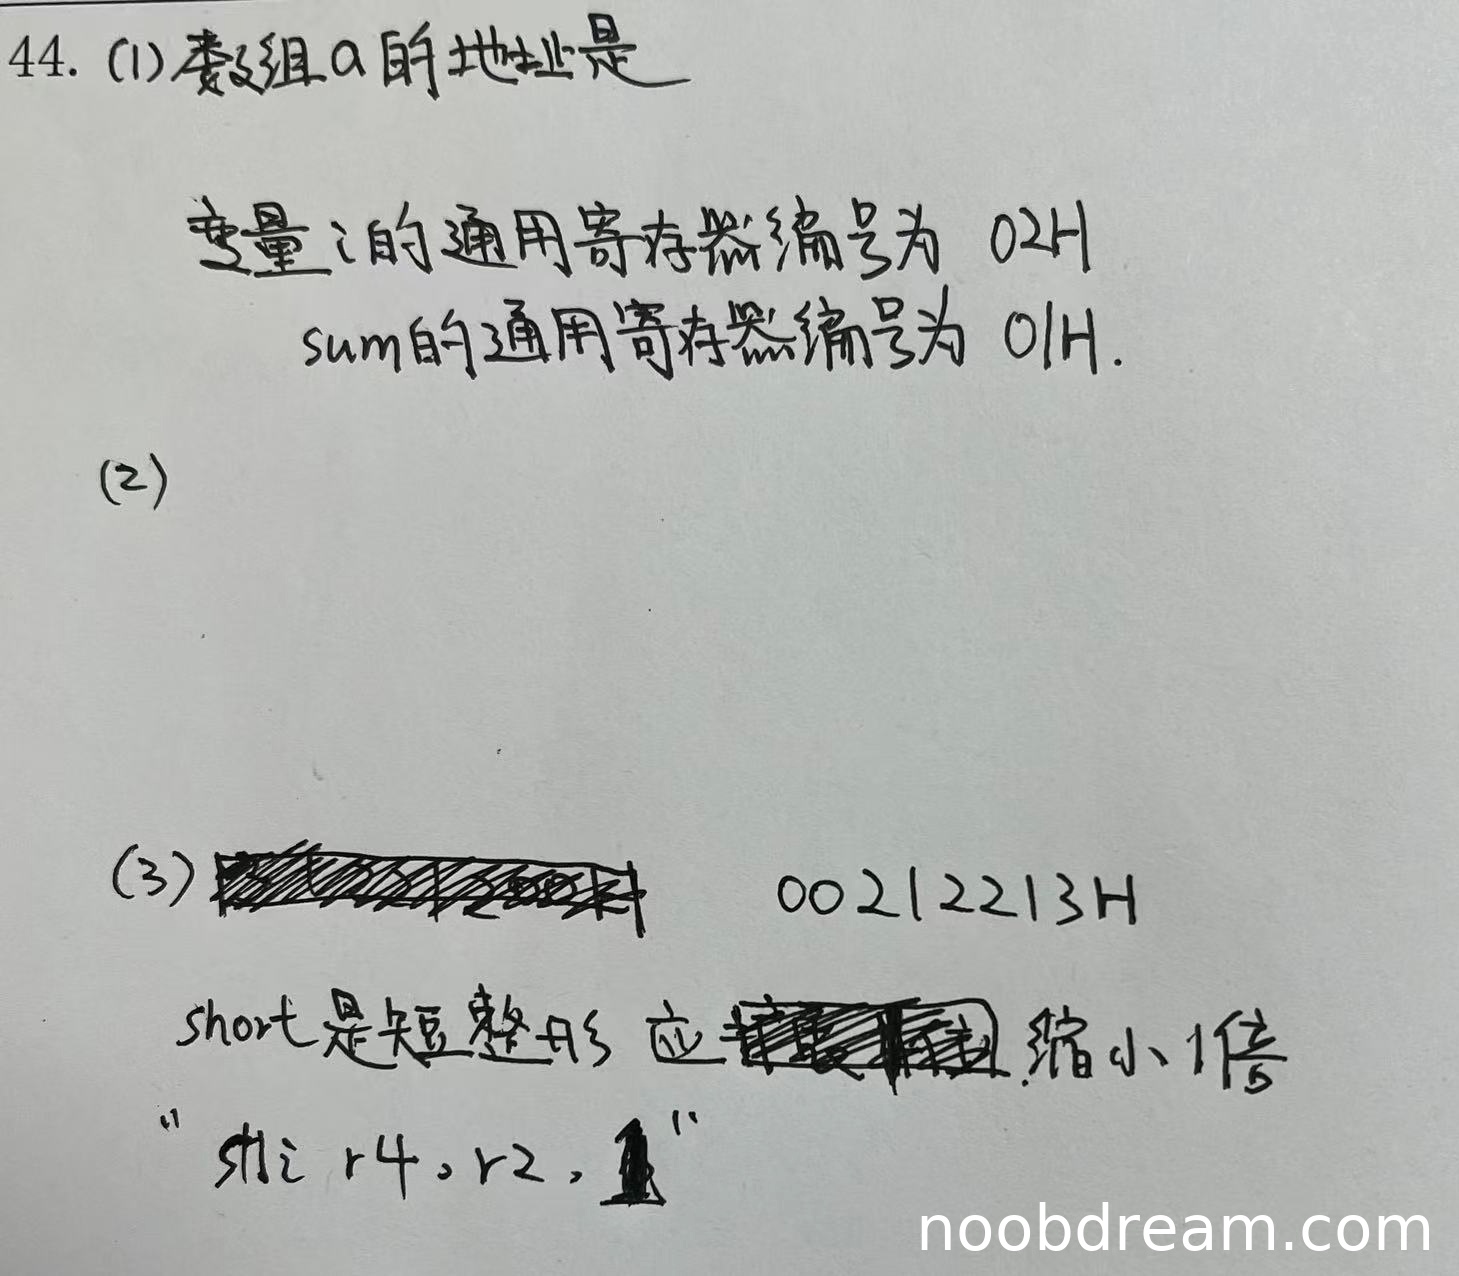 44. (1)数组a的地址是
变量i的通用寄存器编号为 02H
sum的通用寄存器编号为 01H.
(2)
(3) 00212213H
short是短整形 应 缩小1倍
"slli r4, r2, 1"
noobdream.com